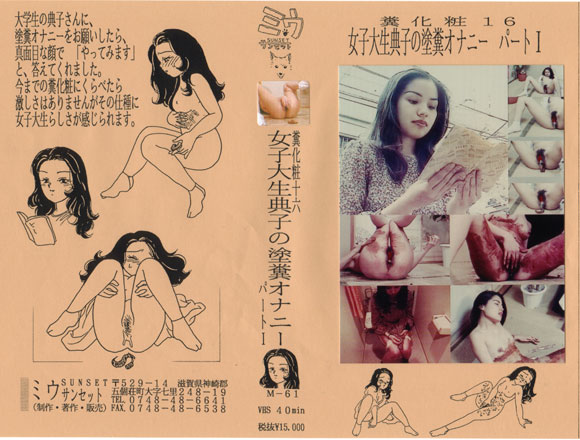 大学生の典子さんに、
塗糞オナニーをお願いしたら、
真面目な顔で 「やってみます」
と、答えてくれました。
今までの糞化粧にくらべたら
激しさはありませんがその仕種に
女子大生らしさが感じられます。
ミウ SUNSET サンセット
〒529-14 滋賀県神崎郡
五個荘町大字七里248-19
TEL.0748-48-6641
FAX.0748-48-6538
(制作・著作・販売)
ミウ
SUNSET
サンセット
糞化粧十六
女子大生典子の塗糞オナニー
パートⅠ
M-61
VHS 40min
税抜¥15.000
糞化粧16
女子大生典子の塗糞オナニー パートⅠ